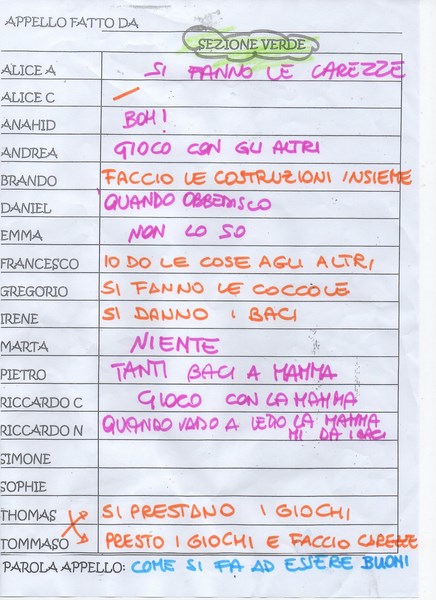 APPELLO FATTO DA
SEZIONE VERDE
ALICE A SI FANNO LE CAREZZE
ALICE C
ANAHID BOH!
ANDREA GIOCO CON GLI ALTRI
BRANDO FACCIO LE COSTRUZIONI INSIEME
DANIEL QUANDO OBBEDISCO
EMMA NON LO SO
FRANCESCO IO DO LE COSE AGLI ALTRI
GREGORIO SI FANNO LE COCCOLE
IRENE SI DANNO I BACI
MARTA NIENTE
PIETRO TANTI BACI A MAMMA
RICCARDO C GIOCO CON LA MAMMA
RICCARDO N QUANDO VADO A LEDO LA MAMMA
MI DA I BACI
SIMONE
SOPHIE
THOMAS SI PRESTANO I GIOCHI
TOMMASO PRESTO I GIOCHI E FACCIO CAREZZE
PAROLA APPELLO: COME SI FA AD ESSERE BUONI